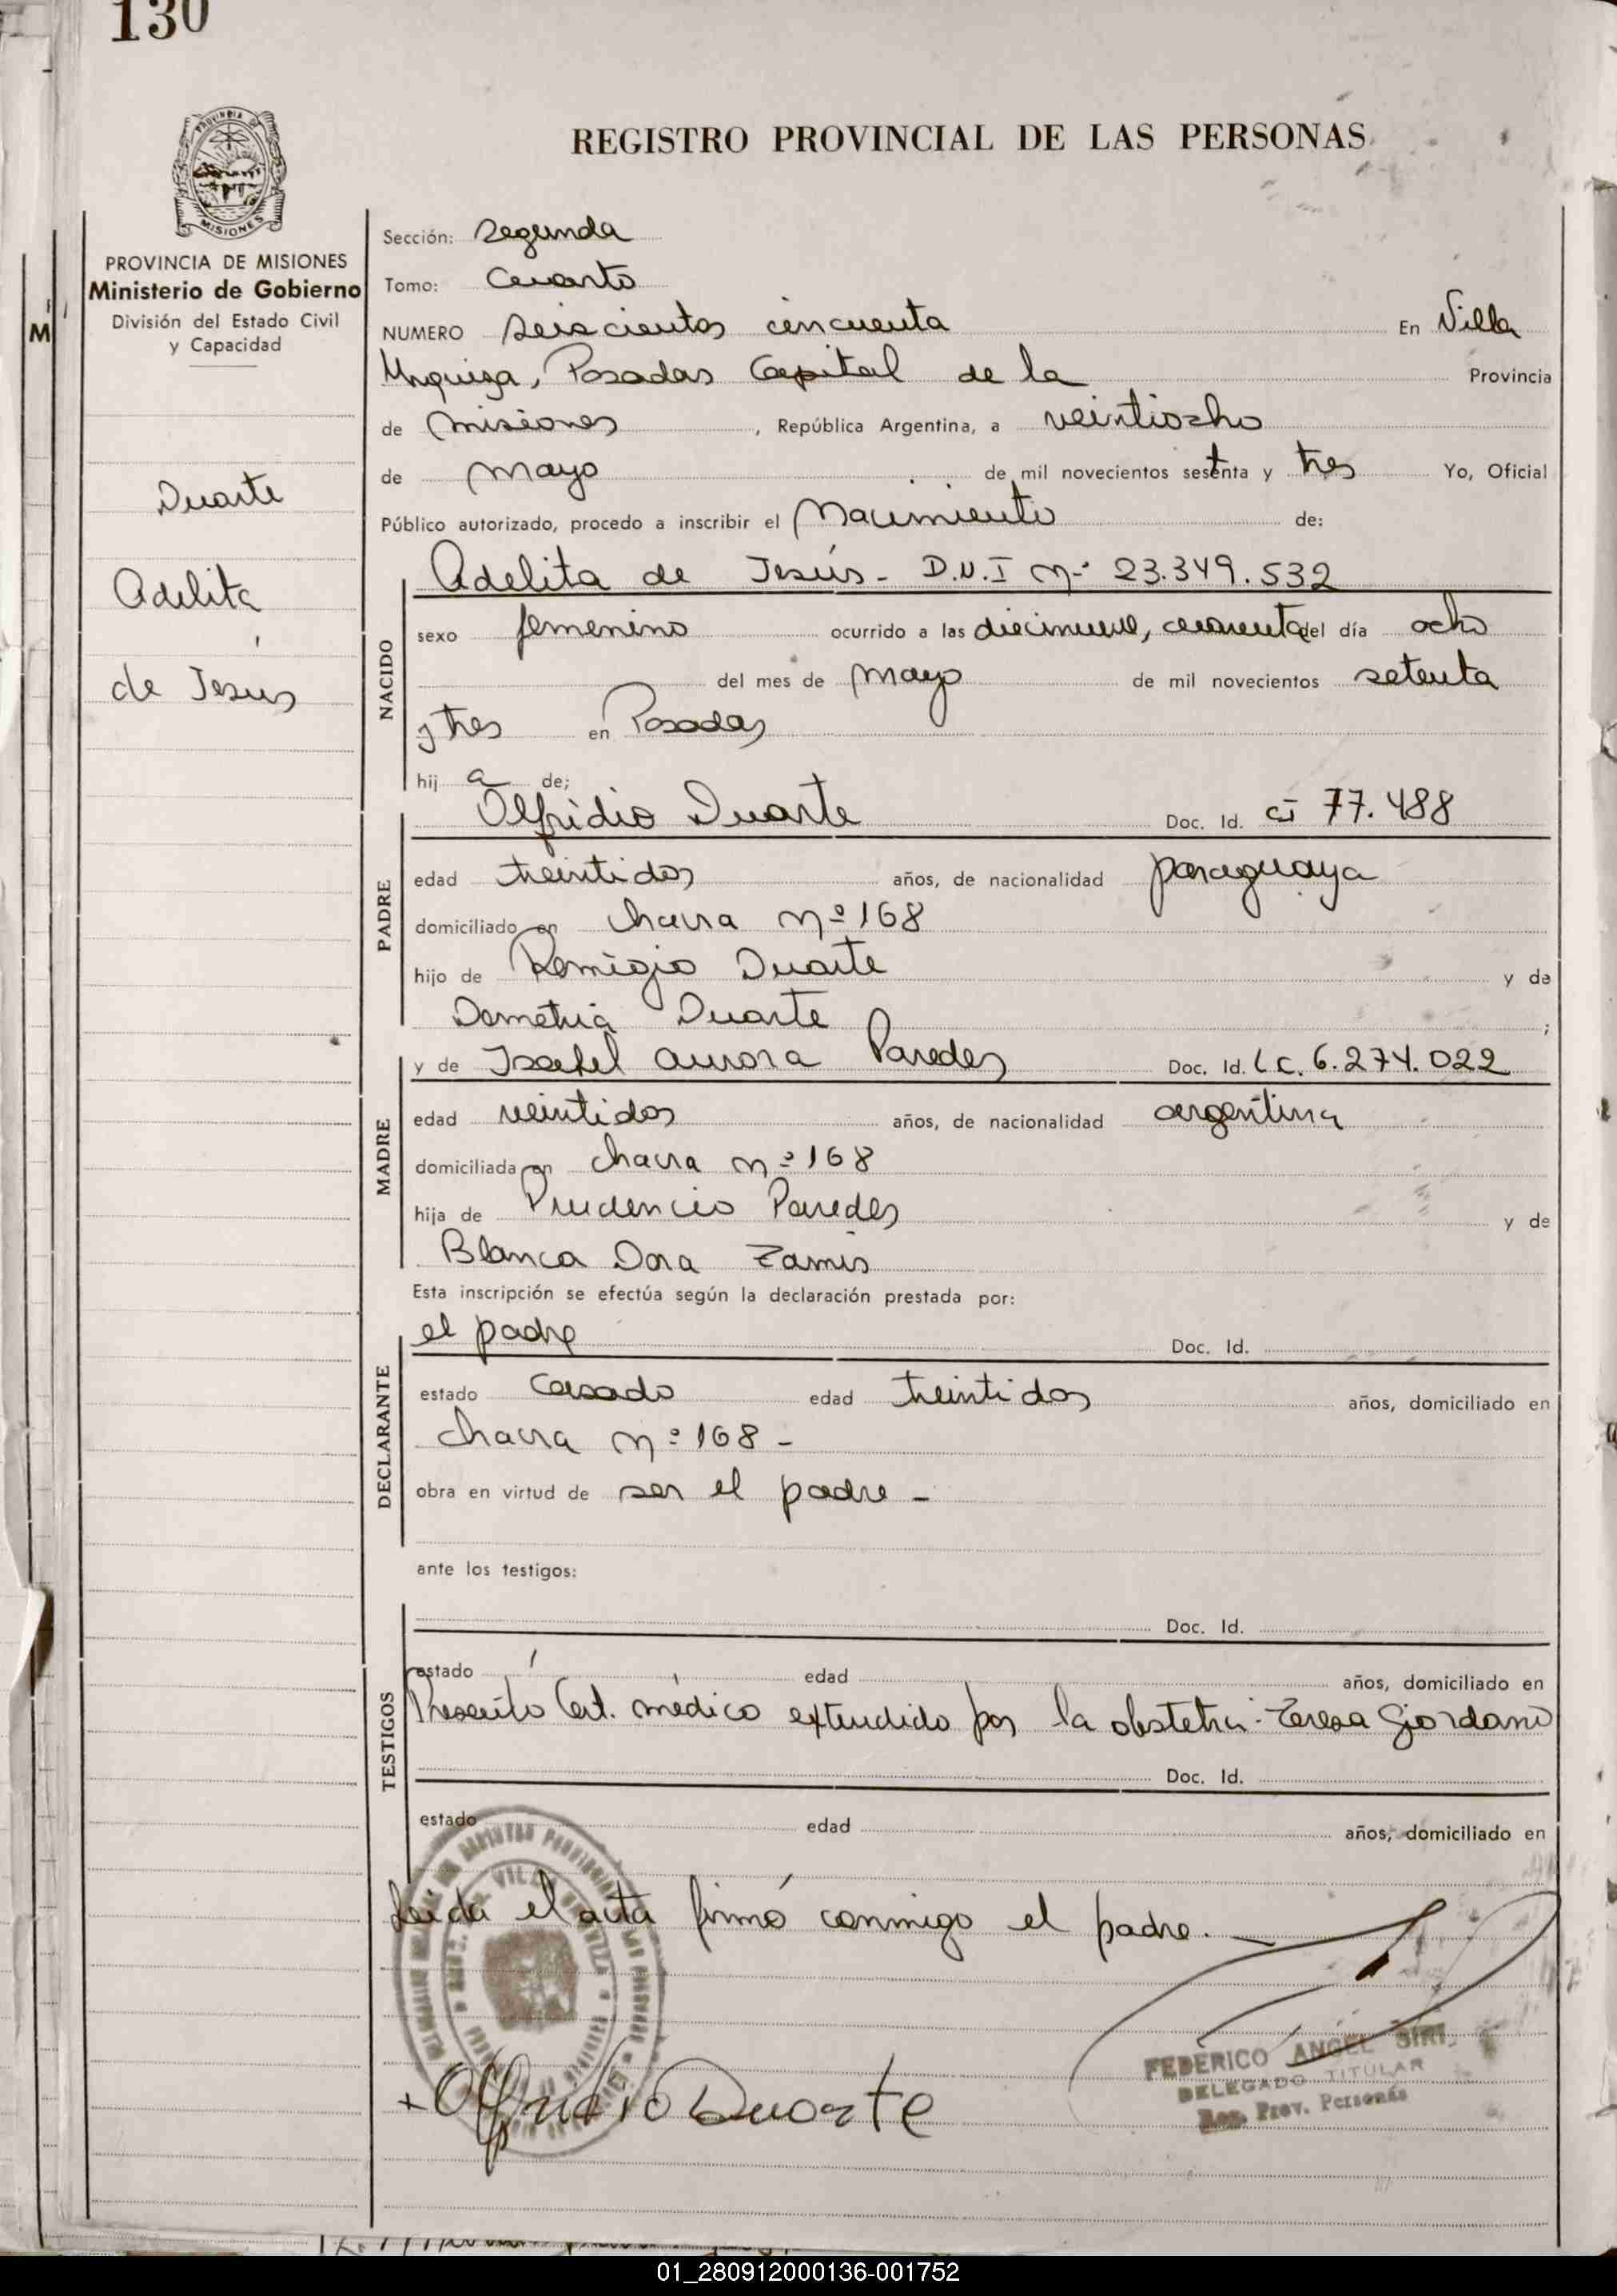 130
PROVINCIA DE MISIONES
REGISTRO PROVINCIAL DE LAS PERSONAS
PROVINCIA DE MISIONES
Ministerio de Gobierno
División del Estado Civil
y Capacidad
M
Duarte
Adelita
de Jesús
Sección: Segunda
Tomo: Cuarto
NUMERO Seiscientos cincuenta En Villa
Urquiza, Posadas Capital de la Provincia
de Misiones, República Argentina, a veintiocho
de Mayo de mil novecientos setenta y tres Yo, Oficial
Público autorizado, procedo a inscribir el Nacimiento de:
NACIDO
Adelita de Jesús - D.N.I Nº 23.349.532
sexo femenino ocurrido a las diecinueve, cuarenta del día ocho
del mes de Mayo de mil novecientos setenta
y tres en Posadas
hij a de;
PADRE
Olfridio Duarte Doc. Id. CI 77.488
edad treintidos años, de nacionalidad paraguaya
domiciliado en chacra Nº 168
hijo de Remigio Duarte y de
Demetria Duarte ;
MADRE
y de Isabel Aurora Paredes Doc. Id. LC. 6.274.022
edad veintidos años, de nacionalidad argentina
domiciliada en chacra Nº 168
hija de Prudencio Paredes y de
Blanca Dora
Esta inscripción se efectúa según la declaración prestada por:
DECLARANTE
el padre Doc. Id.
estado Casado edad treintidos años, domiciliado en
chacra Nº 168 -
obra en virtud de ser el padre -
ante los testigos:
TESTIGOS
Doc. Id.
estado edad años, domiciliado en
Presentó Cert. médico extendido por la obstetri. Teresa Giordano
Doc. Id.
estado edad años, domiciliado en
Leída el acta firmó conmigo el padre. —
FEDERICO ANGEL SIRI
DELEGADO TITULAR
Reg. Prov. Personas
+ Olfridio Duarte
01_280912000136-001752